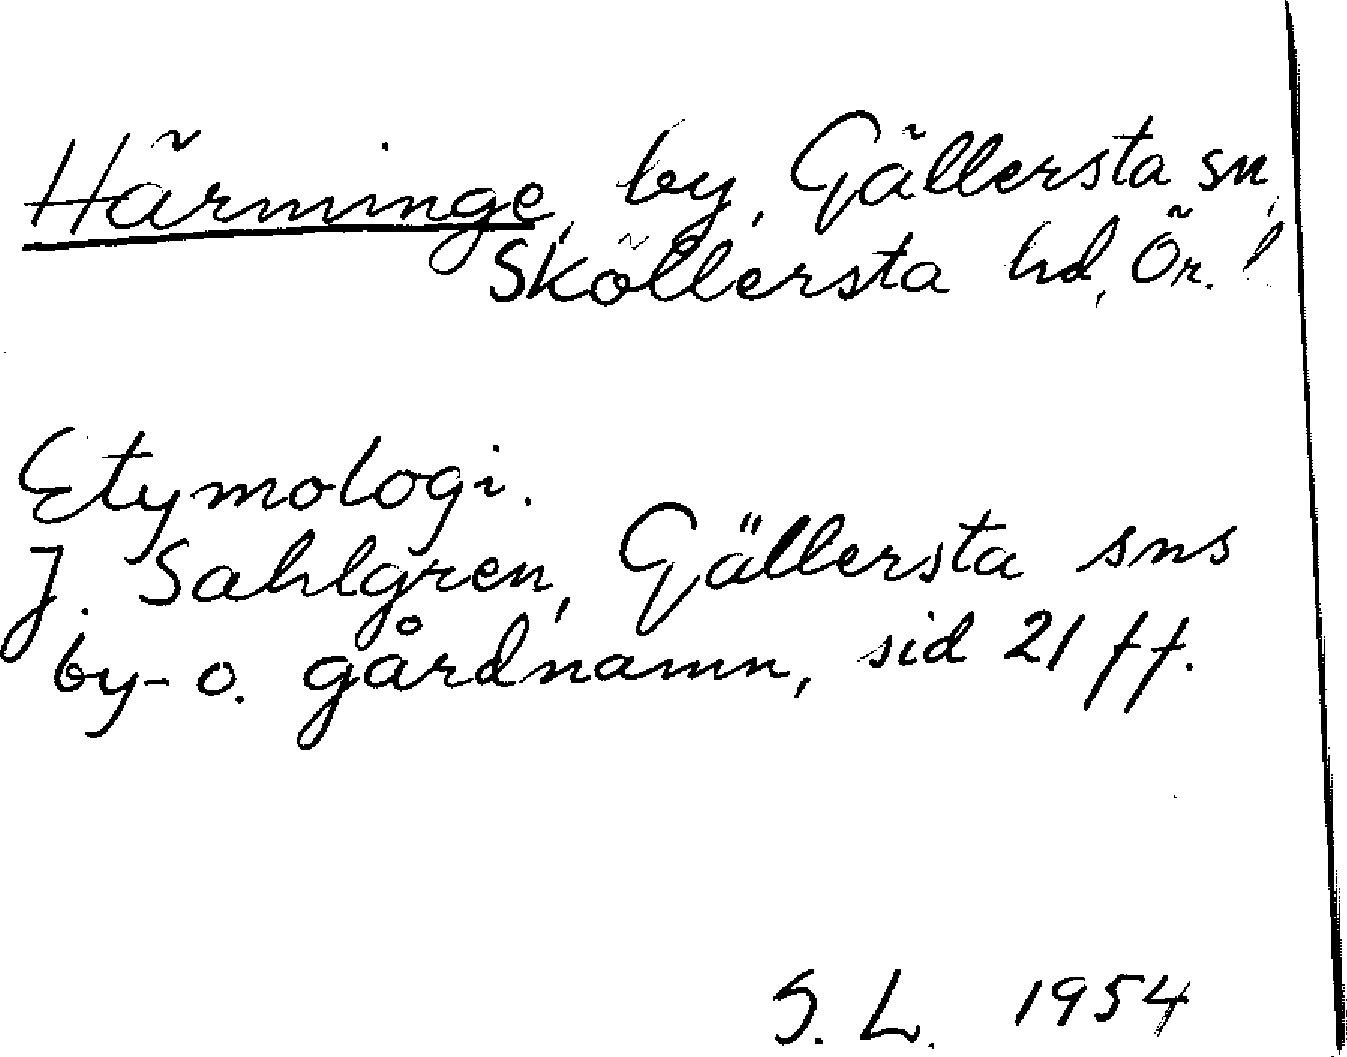 Härminge, by, Gällersta sn,
Sköllersta hd, Ör. l
Etymologi.
J. Sahlgren, Gällersta sns
by- o. gårdnamn, sid 21 ff.
S. L. 1954